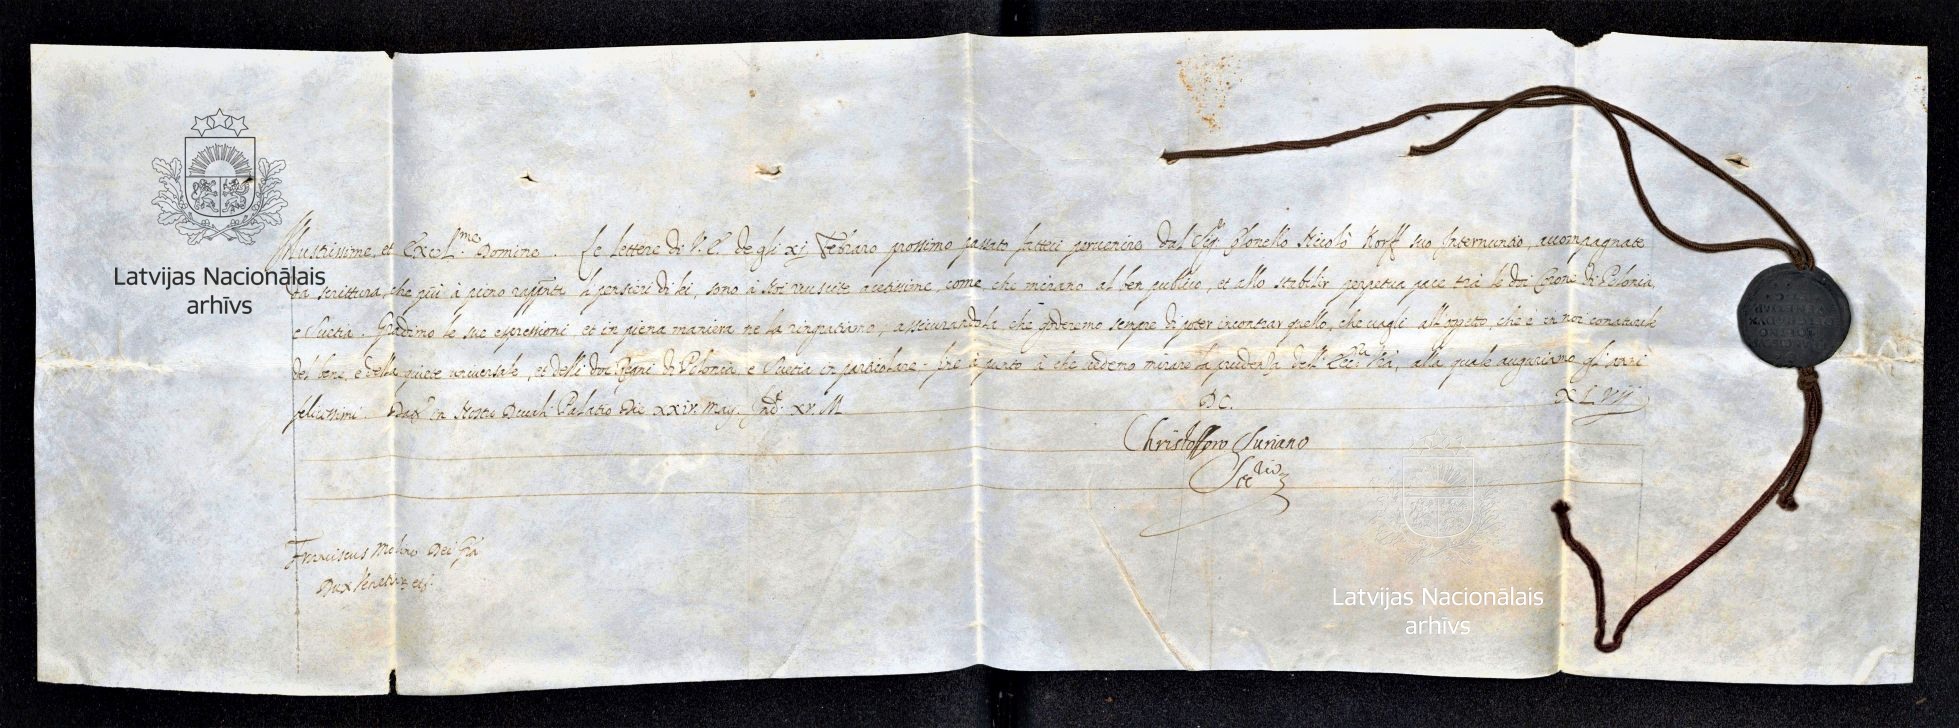 Latvijas Nacionālais
arhīvs
Illustrissime, et Excel.me Domine. Le lettere di V. E. de gli xi Febraro prossimo passato fatteci pervenire dal Sig.r Colonello Nicolò Korff suo Internuncio, accompagnate
da scrittura, che più à pieno i pensieri di lei, sono à Noi riuscite accettissime, come, che mirano al ben publico, et allo stabilir perpetua pace trà le doi Corone di Polonia,
e Suetia. Gradimo le sue espressioni, et in piena maniera ne la ringratiamo, assicurandola, che goderemo sempre di poter incontrar quello, che vagli all'oggetto, che è in noi connaturale
del bene, e della quiete universale, et delli doi Regni di Polonia, e Suetia in particolare. à punto à che vedemo mirare la prudenza dell' alla quale auguriamo gli anni
felicissimi. Dat. in Nostro Ducali Palatio Die xxiv. May. Ind.e xv. M DC. XLVII
Christofforo Suriano
Sec.rio
Franciscus Molino Dei Gra
Dux Venetiar. etc.
Latvijas Nacionālais
arhīvs